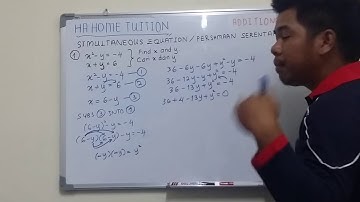 HA HOME TUITION
ADDITION
SIMULTANEOUS EQUATION / PERSAMAAN SERENTA
① x² - y = -4
x + y = 6
Find x and y.
Cari x dan y.
x² - y = -4 — ①
x + y = 6 — ②
x = 6 - y — ③
SUBS ③ INTO ①
(6-y)² - y = -4
(6-y)(6-y) - y = -4
(-y)(-y) = y²
36 - 6y - 6y + y² - y = -4
36 - 12y - y + y² = -4
36 - 13y + y² = -4
36 + 4 - 13y + y² = 0